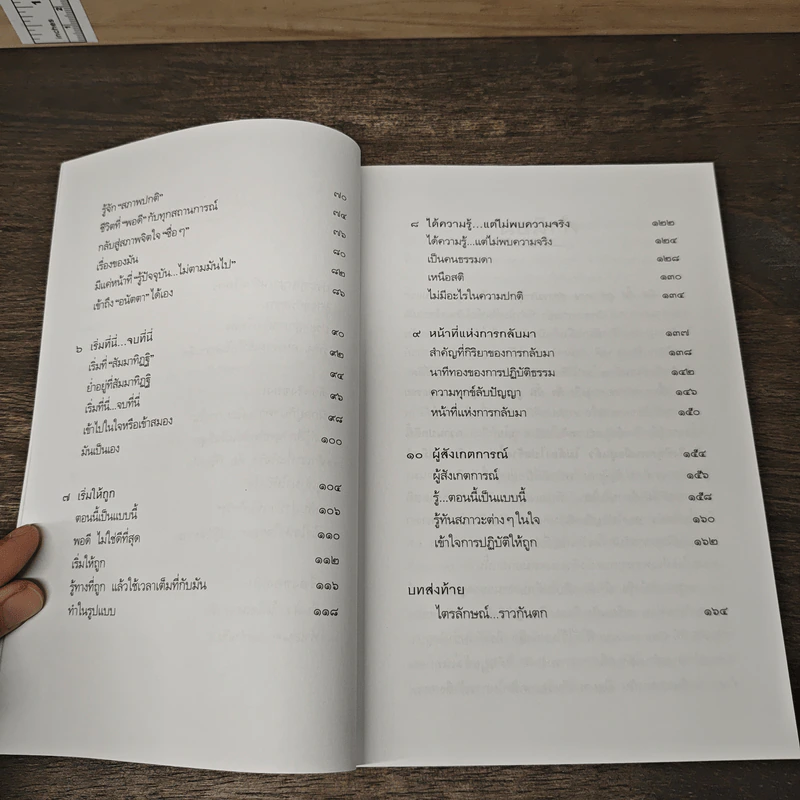 รู้จัก "สภาพปกติ" ๗๐
ชีวิตที่ "พอดี" กับทุกสถานการณ์ ๗๔
กลับสู่สภาพจิตใจ "ซื่อ ๆ" ๗๖
เรื่องของมัน ๘๐
มีแค่หน้าที่ "รู้ปัจจุบัน...ไม่ตามมันไป" ๘๒
เข้าถึง "อนัตตา" ได้เอง ๘๖
๖ เริ่มที่นี่...จบที่นี่ ๙๐
เริ่มที่ "สัมมาทิฏฐิ" ๙๒
ย่ำอยู่ที่สัมมาทิฏฐิ ๙๔
เริ่มที่นี่...จบที่นี่ ๙๖
เข้าไปในใจหรือเข้าสมอง ๙๘
มันเป็นเอง ๑๐๐
๗ เริ่มให้ถูก ๑๐๔
ตอนนี้เป็นแบบนี้ ๑๐๖
พอดี ไม่ใช่ดีที่สุด ๑๑๐
เริ่มให้ถูก ๑๑๒
รู้ทางที่ถูก แล้วใช้เวลาเต็มที่กับมัน ๑๑๖
ทำในรูปแบบ ๑๑๘
๘ ได้ความรู้...แต่ไม่พบความจริง ๑๒๒
ได้ความรู้...แต่ไม่พบความจริง ๑๒๔
เป็นคนธรรมดา ๑๒๘
เหนือสติ ๑๓๐
ไม่มีอะไรในความปกติ ๑๓๔
๙ หน้าที่แห่งการกลับมา ๑๓๗
สำคัญที่กิริยาของการกลับมา ๑๓๘
นาทีทองของการปฏิบัติธรรม ๑๔๒
ความทุกข์ลับปัญญา ๑๔๖
หน้าที่แห่งการกลับมา ๑๕๐
๑๐ ผู้สังเกตการณ์ ๑๕๔
ผู้สังเกตการณ์ ๑๕๖
รู้...ตอนนี้เป็นแบบนี้ ๑๕๘
รู้ทันสภาวะต่าง ๆ ในใจ ๑๖๐
เข้าใจการปฏิบัติให้ถูก ๑๖๒
บทส่งท้าย
ไตรลักษณ์...ราวกันตก ๑๖๔